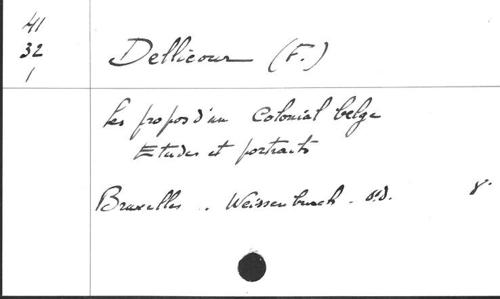 41
32
1
Dellicour (F.)
Les propos d'un Colonial belge
Etudes et portraits
Bruxelles . Weissenbruch . s.d. 8°